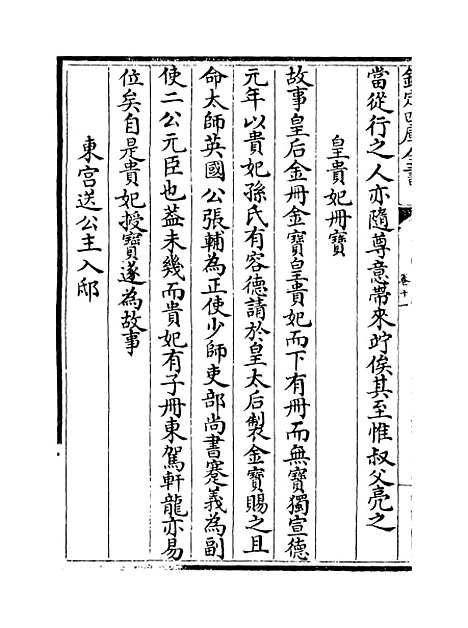 欽定四庫全書
卷十一
當從行之人亦隨尊意帶來竚俟其至惟叔父亮之
皇貴妃冊寶
故事皇后金冊金寶皇貴妃而下有冊而無寶獨宣德
元年以貴妃孫氏有容德請於皇太后製金寶賜之且
命太師英國公張輔為正使少師吏部尚書蹇義為副
使二公元臣也葢未幾而貴妃有子冊東駕軒龍亦易
位矣自是貴妃授寶遂為故事
東宫送公主入邸